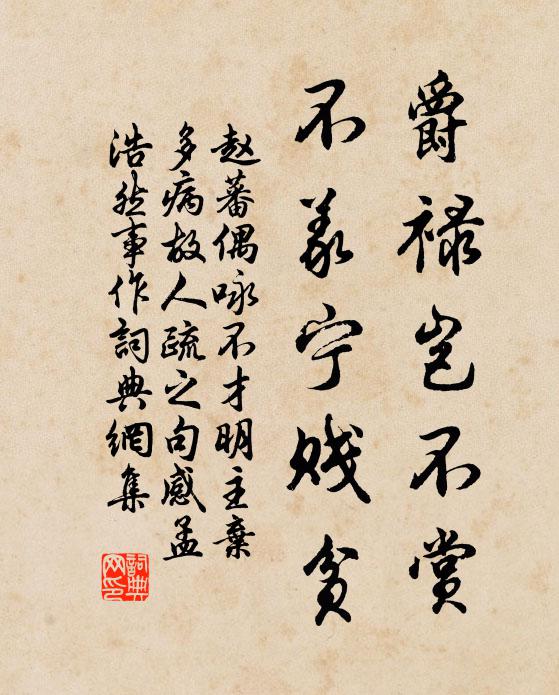 爵禄岂不赏
不义宁贱贫
赵蕃偶咏不才明主弃
多病故人疏之句感孟
浩然事作詞典網集
詞典网印